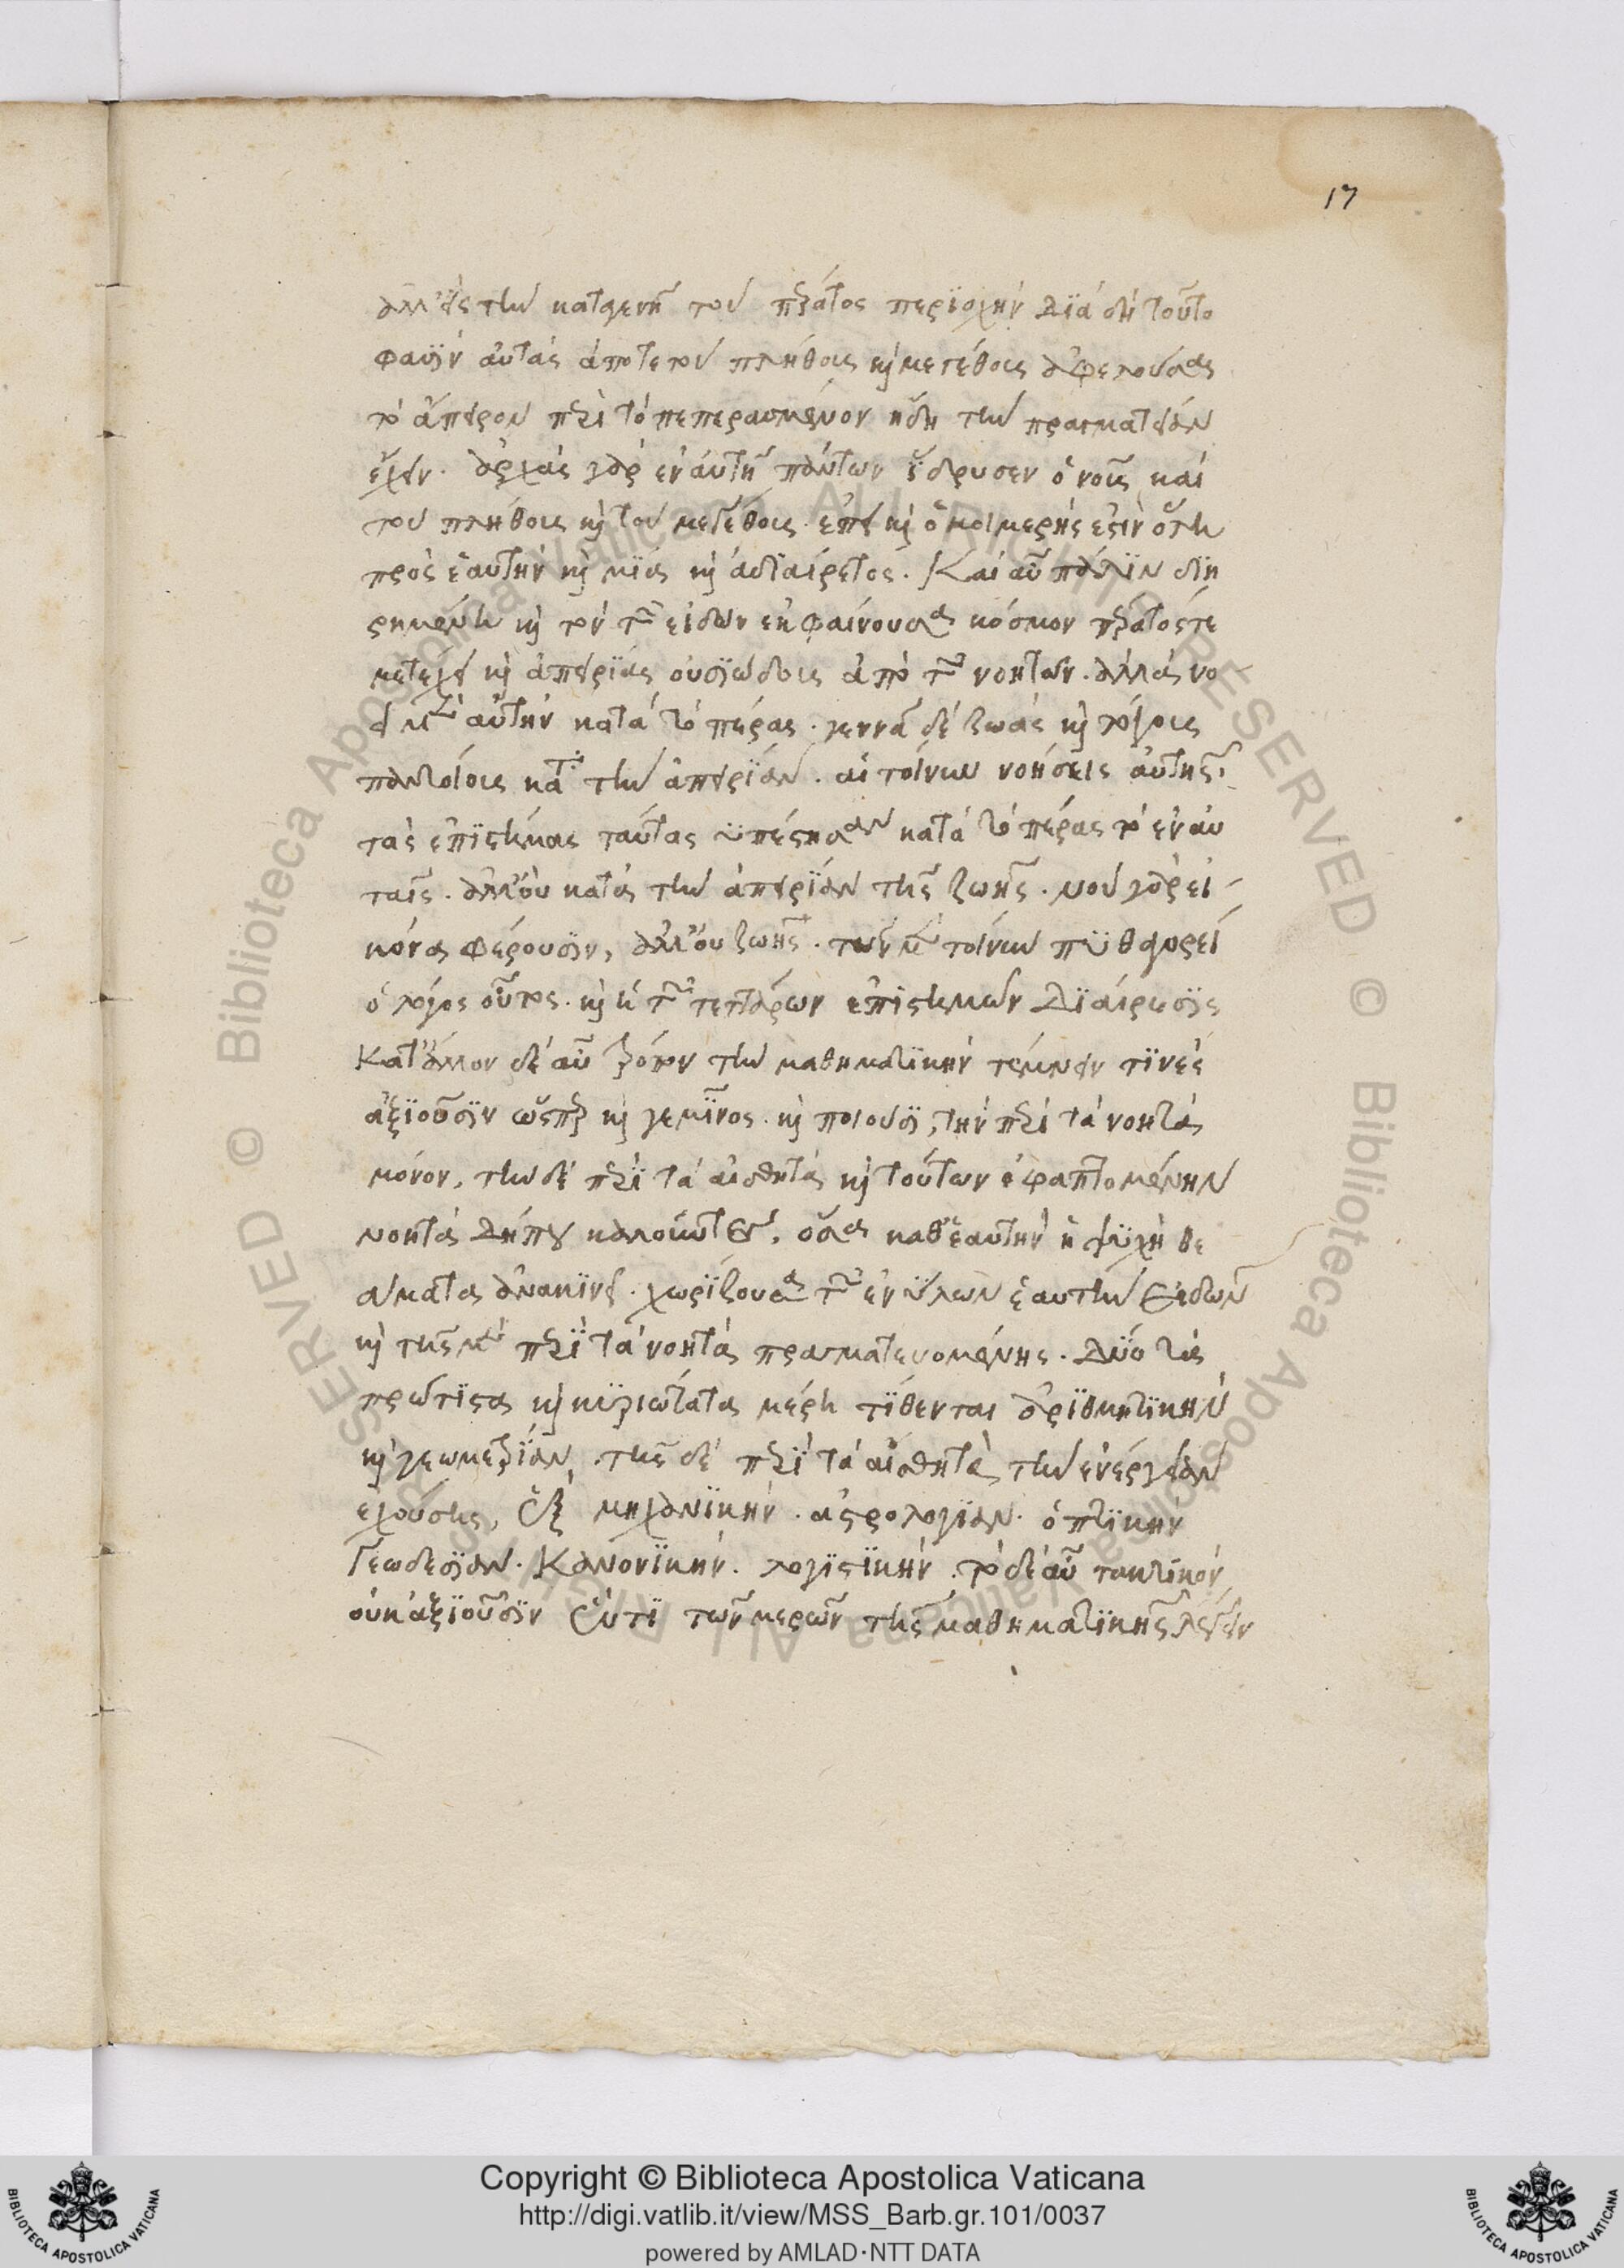 17
ἀλλ' εἰς τὴν κατὰ γένη τοῦ πέρατος περϊοχὴν Διὰ δὴ τοῦτο
φασὶν αὐτὰς ἀπό τε τοῦ πλήθους καὶ μεγέθους ἀφελούσας
τὸ ἄπειρον περὶ τὸ πεπερασμένον ἤδη τὴν πραγματείαν
ἔχειν. ἀρχὰς γὰρ ἐν αὐτῇ πάντων ἵδρυσεν ὁ νοῦς καὶ
τοῦ πλήθους καὶ τοῦ μεγέθους. ἐπεὶ καὶ ὁμοιμερής ἐστιν ὅλη
πρὸς ἑαυτὴν καὶ μία καὶ ἀδιαίρετος. Καὶ αὖ πάλιν διη
ρημένη καὶ τὸν τῶν εἰδῶν ἐκφαίνουσα κόσμον πέρατός τε
μετέχει καὶ ἀπειρίας οὐσιώδους ἀπὸ τῶν νοητῶν. ἀλλὰ νο
εῖ μὲν αὐτὴν κατὰ τὸ πέρας. γεννᾷ δὲ ζωὰς καὶ λόγους
παντοίους κατὰ τὴν ἀπειρίαν. αἱ τοίνυν νοήσεις αὐτῆς
τὰς ἐπιστήμας ταύτας ὑπέστησαν κατὰ τὸ πέρας τὸ ἐν αυ
ταῖς. ἀλλ' οὐ κατὰ τὴν ἀπειρίαν τῆς ζωῆς. νοῦ γὰρ εἰ-
κόνα φέρουσιν, ἀλλ' οὐ ζωῆς. τῶν μὲν τοίνυν πυθαγορεί
ὁ λόγος οὗτος. καὶ ἡ τῶν τεττάρων ἐπιστημῶν Διαίρεσις
Κατ' ἄλλον δὲ αὖ τρόπον τὴν μαθηματικὴν τέμνειν τινὲς
ἀξιοῦσιν ὥσπερ καὶ γεμῖνος. καὶ ποιοῦσι, τὴν περὶ τὰ νοητὰ
μόνον, τὴν δὲ περὶ τὰ αἰσθητὰ καὶ τούτων ἐφαπτομένην
νοητὰ Δήπου καλοῦντες, ὅσα καθ' ἑαυτὴν ἡ ψυχὴ θε
άματα ἀνακινεῖ. χωρίζουσα τῶν ἐνύλων ἑαυτὴν εἰδῶν
καὶ τῆς μὲν περὶ τὰ νοητὰ πραγματευομένης. Δύο τὰ
πρώτιστα καὶ κυριώτατα μέρη τίθενται ἀριθμητικὴν
καὶ γεωμετρίαν, τῆς δὲ περὶ τὰ αἰσθητὰ τὴν ἐνέργειαν
ἐχούσης, ἓξ μηχανικὴν. ἀστρολογίαν. ὀπτικὴν
Γεωδεσίαν. Κανονικὴν. λογιστικὴν. τὸ δὲ αὖ τακτικὸν
οὐκ ἀξιοῦσιν ἕν τι τῶν μερῶν τῆς μαθηματικῆς λέγειν
© Biblioteca Apostolica Vaticana ALL RIGHTS RESERVED © Biblioteca Apostolica Vaticana ALL RIGHTS RESERVED
Copyright © Biblioteca Apostolica Vaticana
http://digi.vatlib.it/view/MSS_Barb.gr.101/0037
powered by AMLAD·NTT DATA
BIBLIOTECA APOSTOLICA VATICANA
BIBLIOTECA APOSTOLICA VATICANA